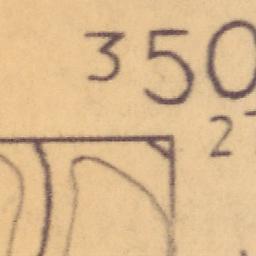 3 50
2